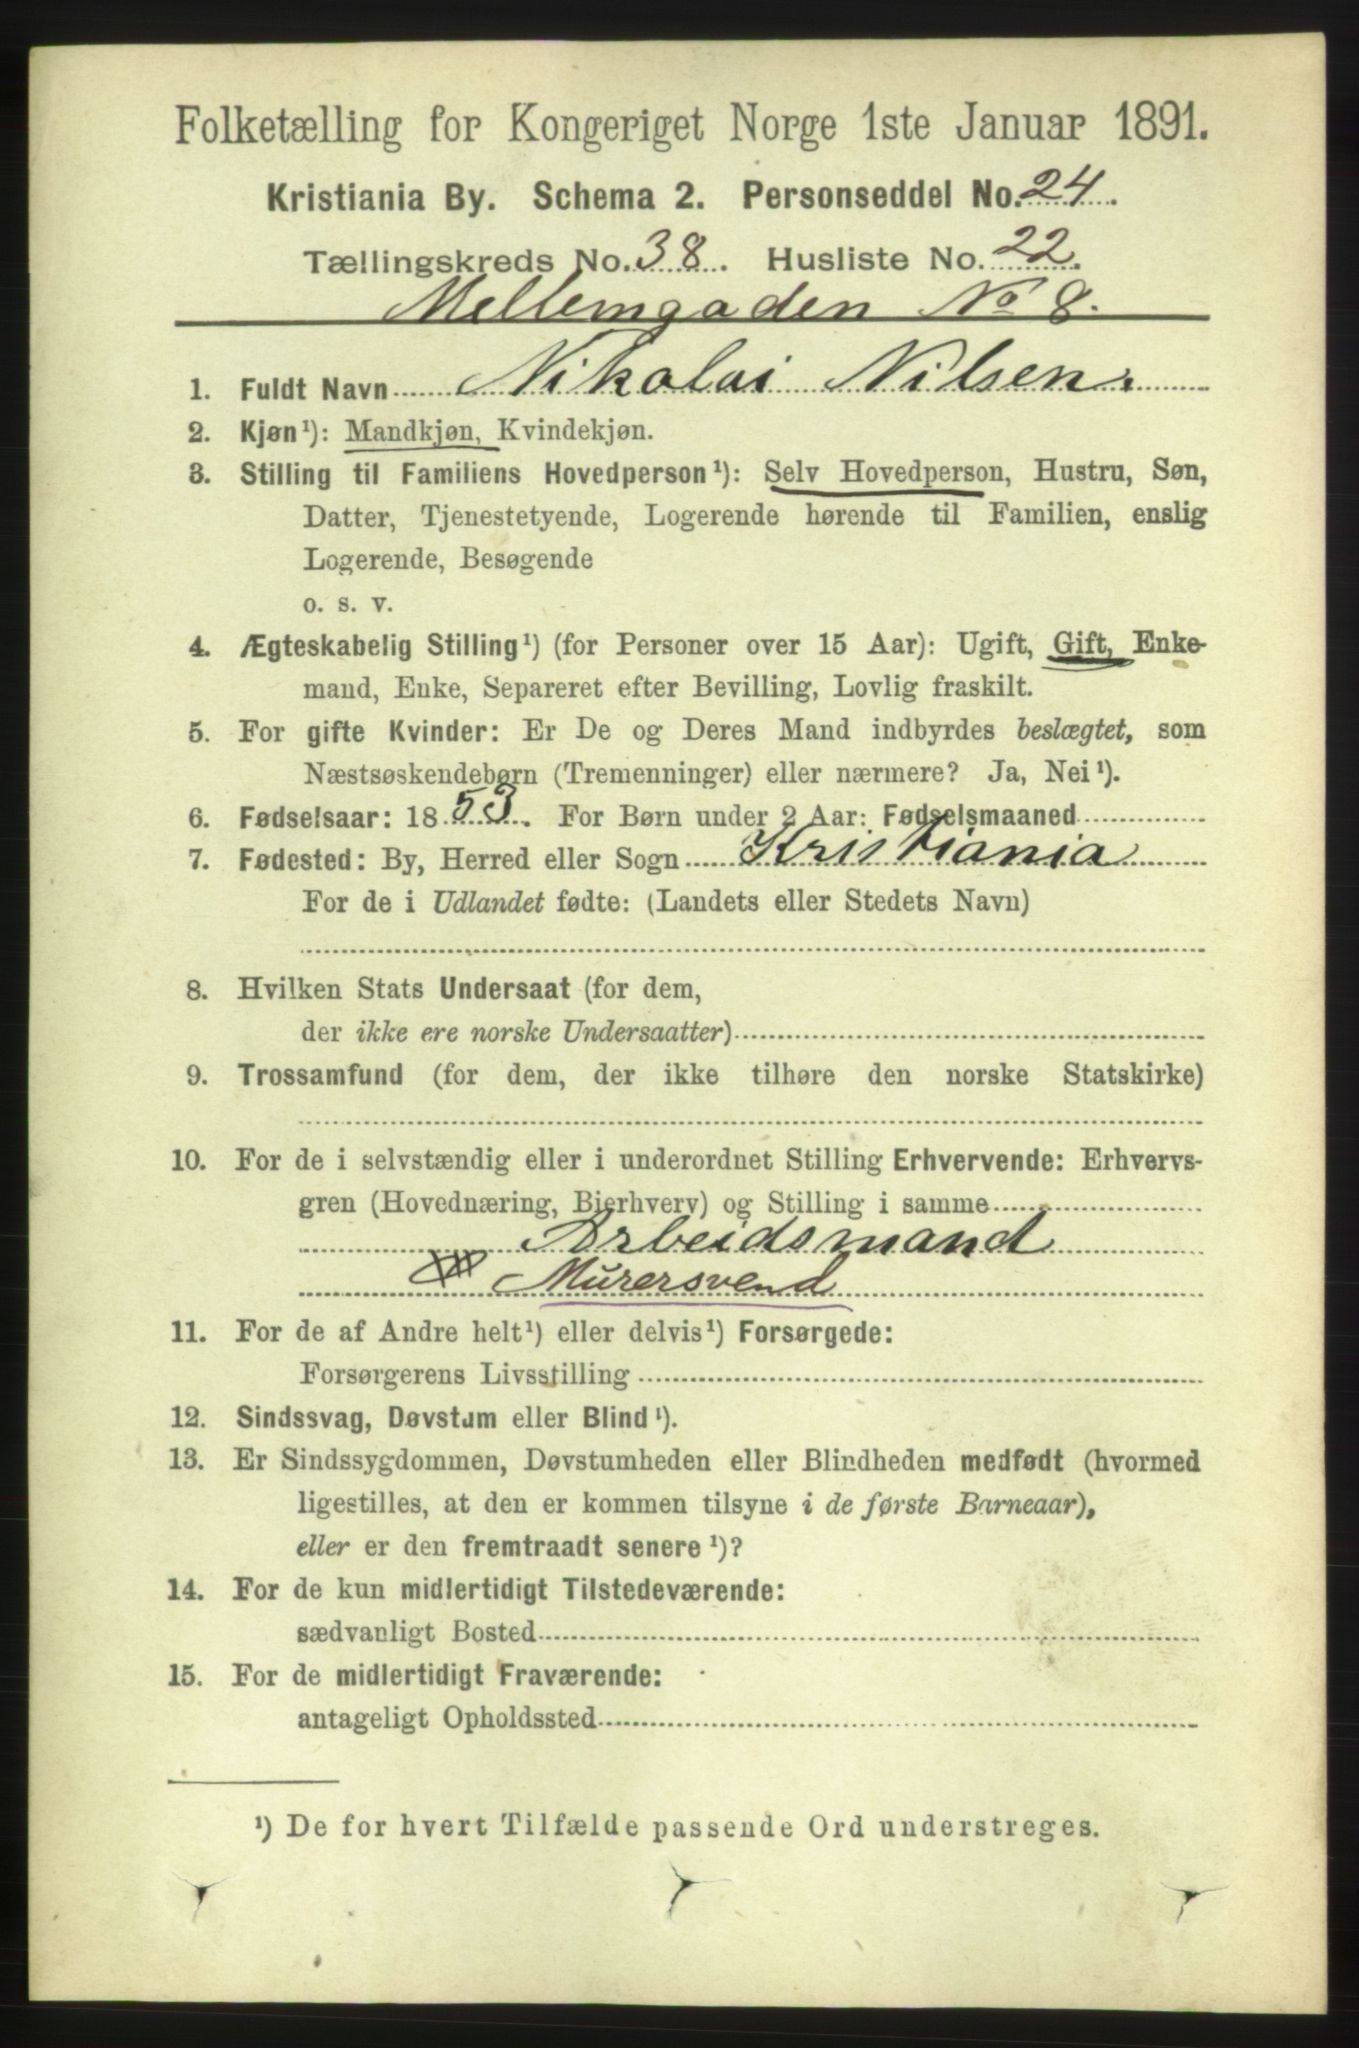 Folketælling for Kongeriget Norge 1ste Januar 1891.
Kristiania By. Schema 2. Personseddel No. 24.
Tællingskreds No. 38. Husliste No. 22.
Mellemgaden No 8.
1. Fuldt Navn Nikolai Nilsen.
2. Kjøn¹): Mandkjøn, Kvindekjøn.
3. Stilling til Familiens Hovedperson¹): Selv Hovedperson, Hustru, Søn,
Datter, Tjenestetyende, Logerende hørende til Familien, enslig
Logerende, Besøgende
o. s. v.
4. Ægteskabelig Stilling¹) (for Personer over 15 Aar): Ugift, Gift, Enke-
mand, Enke, Separeret efter Bevilling, Lovlig fraskilt.
5. For gifte Kvinder: Er De og Deres Mand indbyrdes beslægtet, som
Næstsøskendebørn (Tremenninger) eller nærmere? Ja, Nei¹).
6. Fødselsaar: 1853. For Børn under 2 Aar: Fødselsmaaned
7. Fødested: By, Herred eller Sogn Kristiania
For de i Udlandet fødte: (Landets eller Stedets Navn)
8. Hvilken Stats Undersaat (for dem,
der ikke ere norske Undersaatter)
9. Trossamfund (for dem, der ikke tilhøre den norske Statskirke)
10. For de i selvstændig eller i underordnet Stilling Erhvervende: Erhvervs-
gren (Hovednæring, Bierhverv) og Stilling i samme
Arbeidsmand
Murersvend
11. For de af Andre helt¹) eller delvis¹) Forsørgede:
Forsørgerens Livsstilling
12. Sindssvag, Døvstum eller Blind¹).
13. Er Sindssygdommen, Døvstumheden eller Blindheden medfødt (hvormed
ligestilles, at den er kommen tilsyne i de første Barneaar),
eller er den fremtraadt senere¹)?
14. For de kun midlertidigt Tilstedeværende:
sædvanligt Bosted
15. For de midlertidigt Fraværende:
antageligt Opholdssted
¹) De for hvert Tilfælde passende Ord understreges.